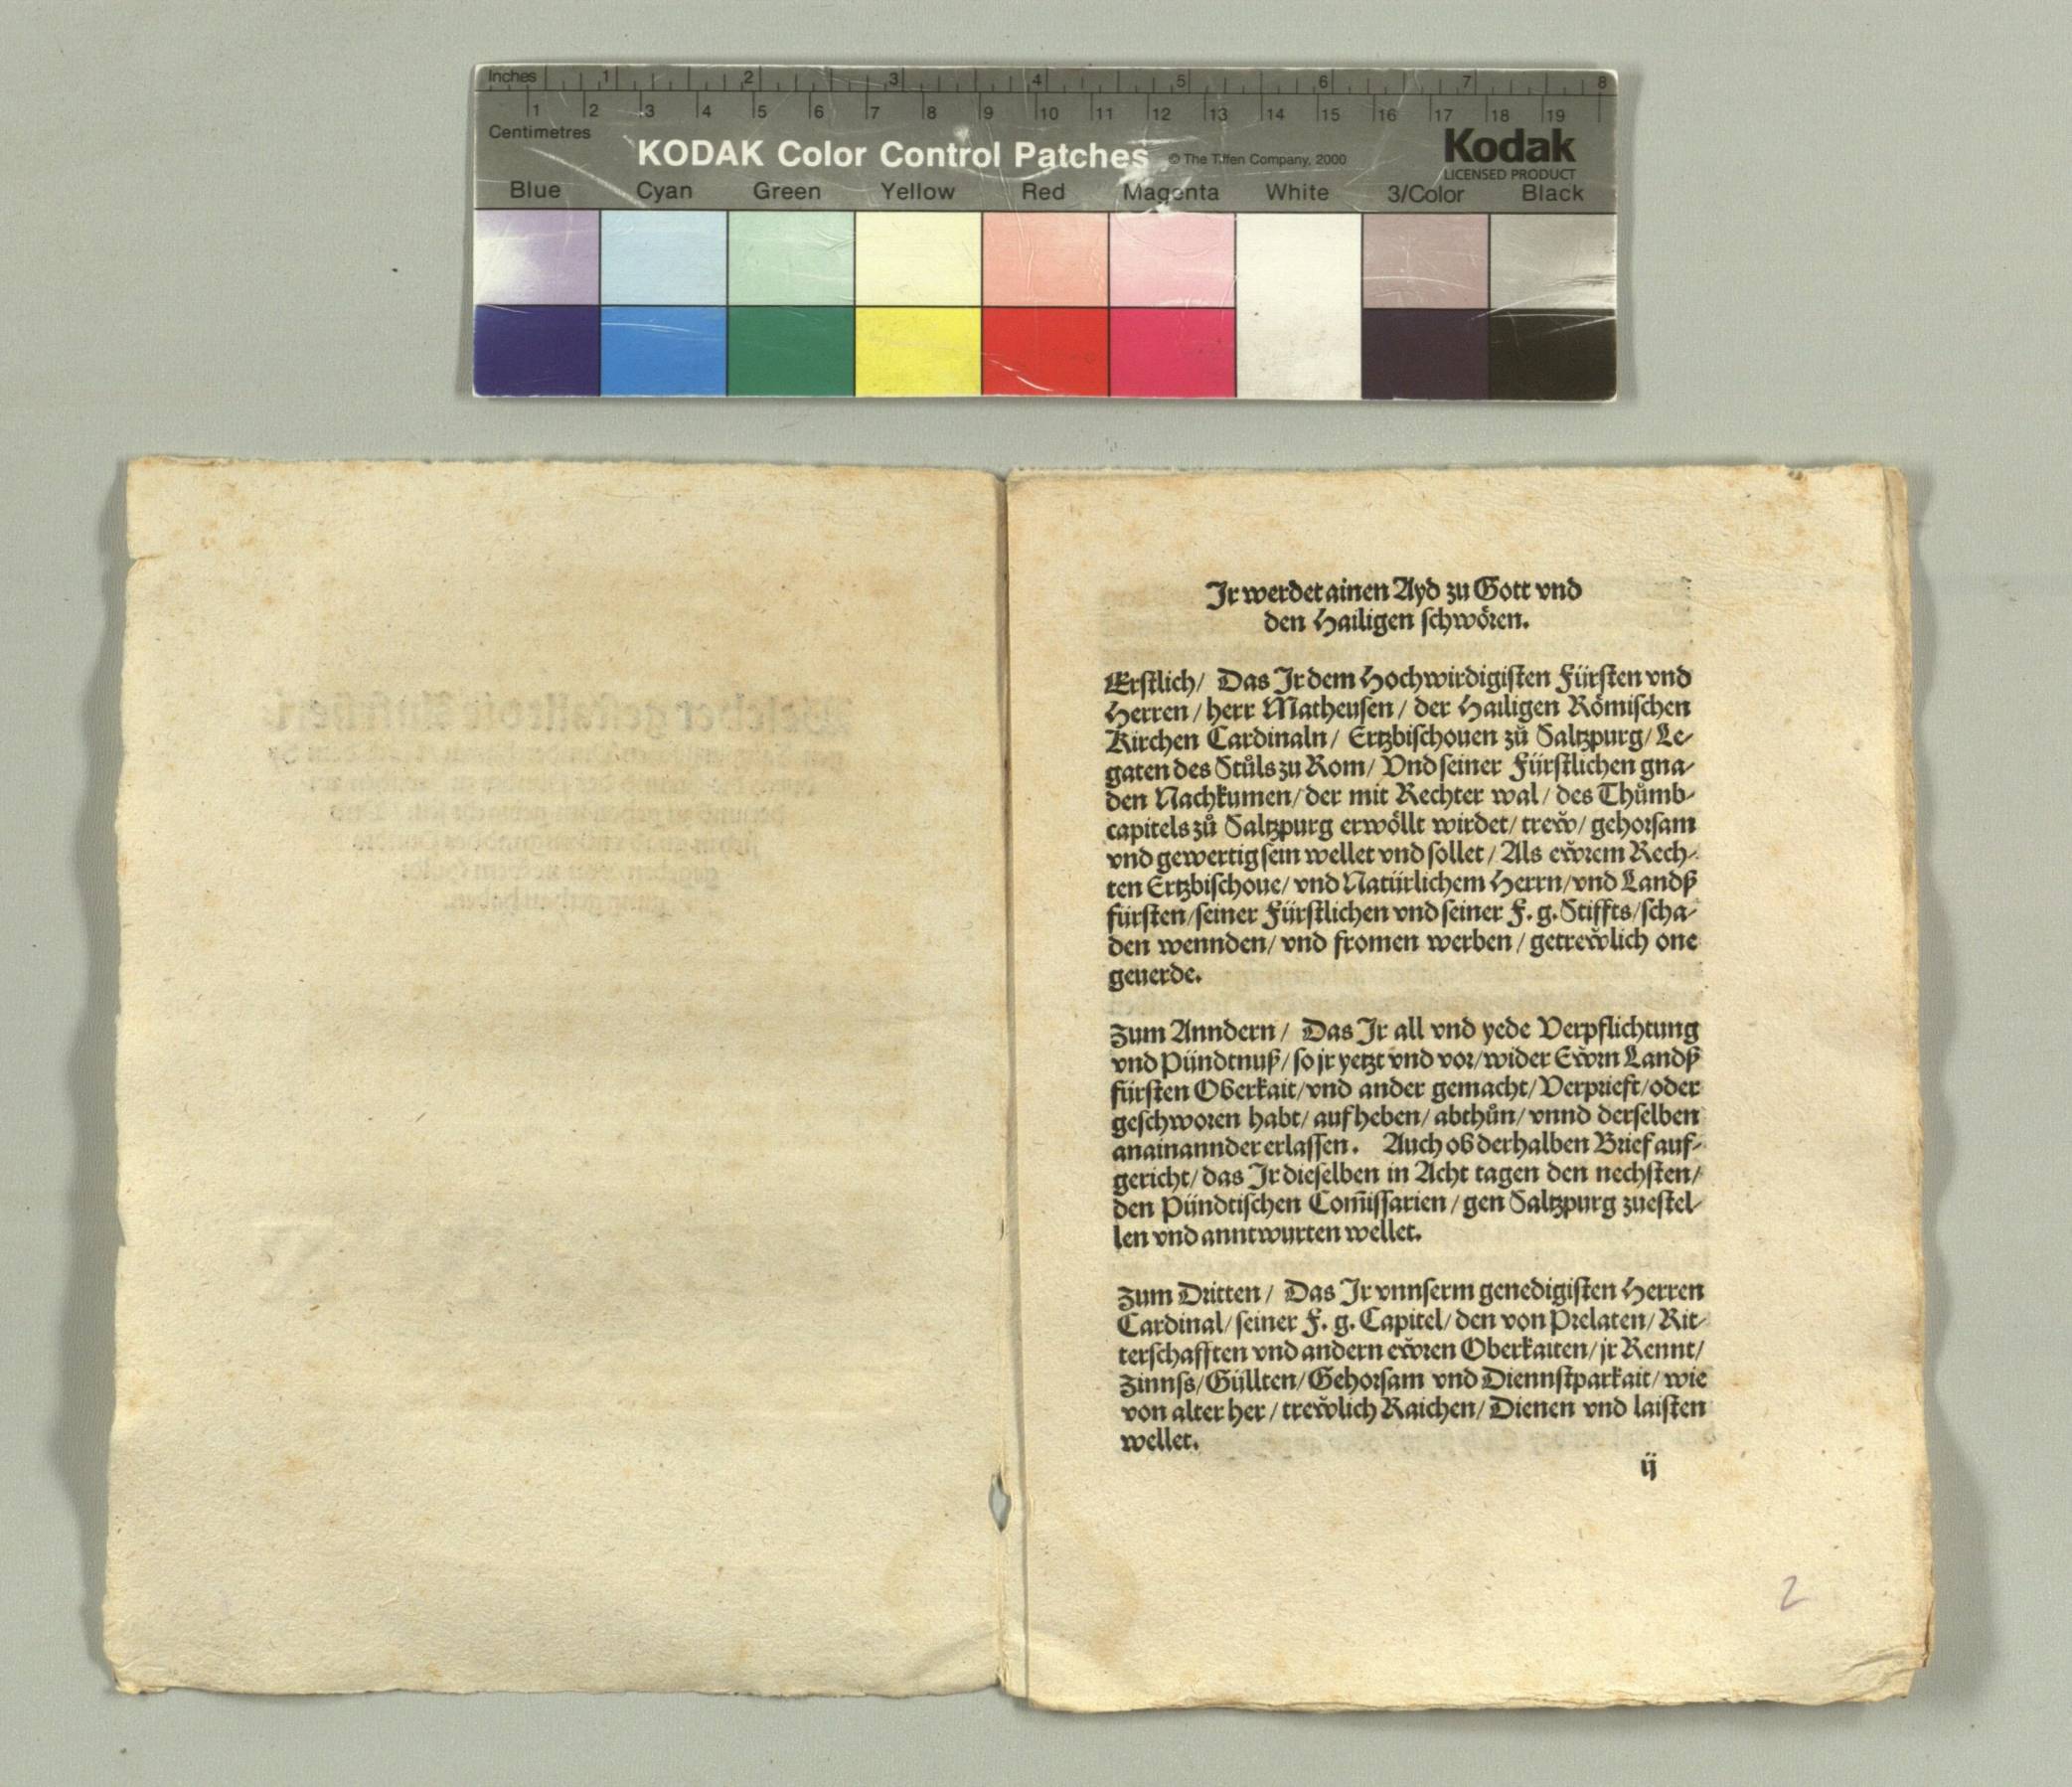 Inches 1 2 3 4 5 6 7 8
1 2 3 4 5 6 7 8 9 10 11 12 13 14 15 16 17 18 19
Centimetres
KODAK Color Control Patches © The Tiffen Company, 2000 Kodak
LICENSED PRODUCT
Blue Cyan Green Yellow Red Magenta White 3/Color Black
Ir werdet ainen Ayd zu Gott vnd
den Hailigen ſchwören.
Erſtlich/ Das Ir dem Hochwirdigiſten Fürſten vnd
Herren/ herr Matheuſen/ der Hailigen Römiſchen
Kirchen Cardinaln/ Ertzbiſchouen zů Saltzpurg/ Le-
gaten des Stůls zu Rom/ Vnd ſeiner Fürſtlichen gna-
den Nachkumen/ der mit Rechter wal/ des Thůmb-
capitels zů Saltzpurg erwöllt wirdet/ trew̌/ gehorſam
vnd gewertig ſein wellet vnd ſollet/ Als ew̌rem Rech-
ten Ertzbiſchoue/ vnd Natürlichem Herrn/ vnd Landß
fürſten/ ſeiner Fürſtlichen vnd ſeiner F. g. Stiffts/ ſcha-
den wennden/ vnd fromen werben/ getrew̌lich one
geuerde.
Zum Anndern/ Das Ir all vnd yede Verpflichtung
vnd Pündtnuß/ ſo jr yetzt vnd vor/ wider Ew̌rn Landß
fürſten Oberkait/ vnd ander gemacht/ Verprieft/ oder
geſchworen habt/ aufheben/ abthůn/ vnnd derſelben
anainannder erlaſſen. Auch ob derhalben Brief auf-
gericht/ das Ir dieſelben in Acht tagen den nechſten/
den Pündtiſchen Com̄iſſarien/ gen Saltzpurg zueſtel-
len vnd anntwurten wellet.
Zum Dritten/ Das Ir vnnſerm genedigiſten Herren
Cardinal/ ſeiner F. g. Capitel/ den von Prelaten/ Rit-
terſchafften vnd andern ew̌ren Oberkaiten/ jr Rennt/
Zinnſs/ Güllten/ Gehorſam vnd Diennſtparkait/ wie
von alter her/ trew̌lich Raichen/ Dienen vnd laiſten
wellet.
ij
2